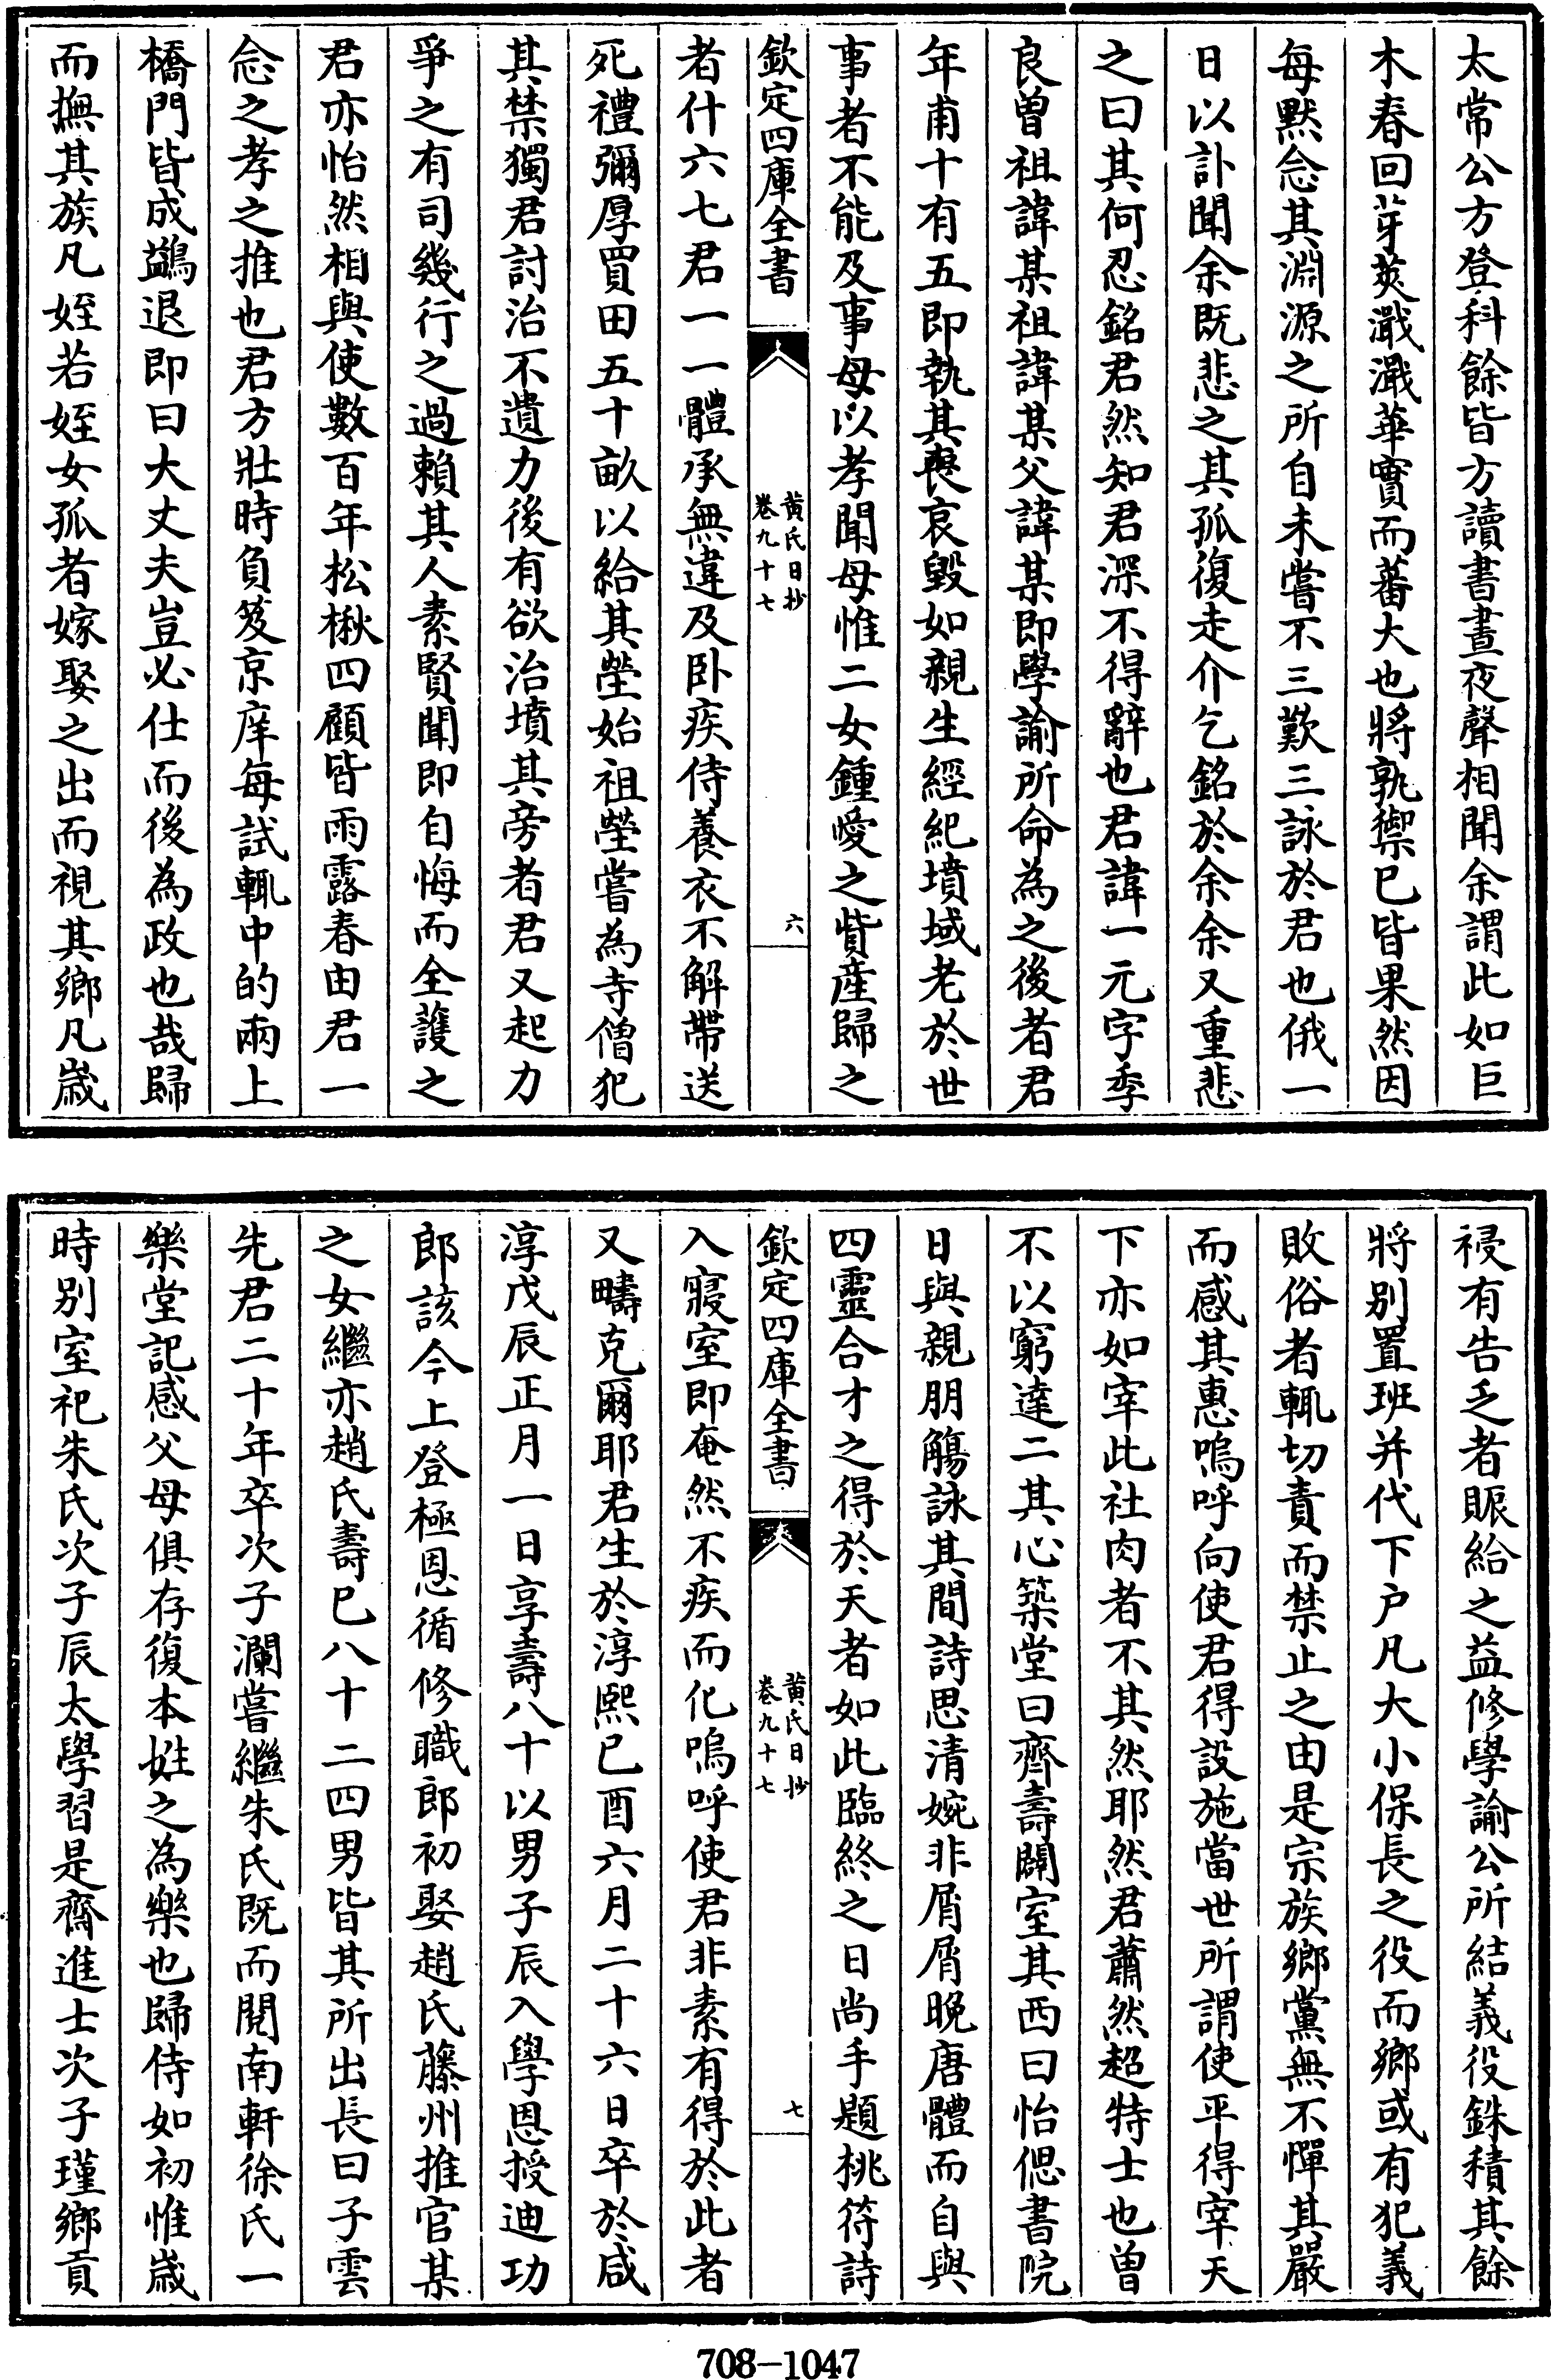 太常公方登科餘皆方讀書晝夜聲相聞余謂此如巨
木春回芽荚濈濈華實而蕃大也將孰禦已皆果然因
每默念其淵源之所自未嘗不三歎三詠於君也俄一
日以訃聞余既悲之其孤復走介乞銘於余余又重悲
之曰其何忍銘君然知君深不得辭也君諱一元字季
良曾祖諱某祖諱某父諱某即學諭所命為之後者君
年甫十有五即執其喪哀毀如親生經紀墳域老於世
事者不能及事母以孝聞母惟二女鍾愛之貲産歸之
欽定四庫全書
黄氏日抄
卷九十七
六
者什六七君一一體承無違及卧疾侍養衣不解帶送
死禮彌厚買田五十畝以給其塋始祖塋嘗為寺僧犯
其禁獨君討治不遺力後有欲治墳其旁者君又起力
爭之有司幾行之過賴其人素賢聞即自悔而全護之
君亦怡然相與使數百年松楸四顧皆雨露春由君一
念之孝之推也君方壯時負笈京庠每試輒中的兩上
橋門皆成鷁退即曰大丈夫豈必仕而後為政也哉歸
而撫其族凡姪若姪女孤者嫁娶之出而視其鄉凡歳
祲有告乏者賑給之益修學諭公所結義役銖積其餘
將别置班并代下户凡大小保長之役而鄉或有犯義
敗俗者輒切責而禁止之由是宗族鄉黨無不憚其嚴
而感其惠嗚呼向使君得設施當世所謂使平得宰天
下亦如宰此社肉者不其然耶然君蕭然超特士也曾
不以窮達二其心築堂曰齊壽闢室其西曰怡偲書院
日與親朋觴詠其間詩思清婉非屑屑晚唐體而自與
四靈合才之得於天者如此臨終之日尚手題桃符詩
欽定四庫全書
黄氏日抄
卷九十七
七
入寢室即奄然不疾而化嗚呼使君非素有得於此者
又疇克爾耶君生於淳熙已酉六月二十六日卒於咸
淳戊辰正月一日享壽八十以男子辰入學恩授迪功
郎該今上登極恩循修職郎初娶趙氏藤州推官某
之女繼亦趙氏壽已八十二四男皆其所出長曰子雲
先君二十年卒次子瀾嘗繼朱氏既而閲南軒徐氏一
樂堂記感父母俱存復本姓之為樂也歸侍如初惟歳
時别室祀朱氏次子辰太學習是齋進士次子瑾鄉貢
708-1047